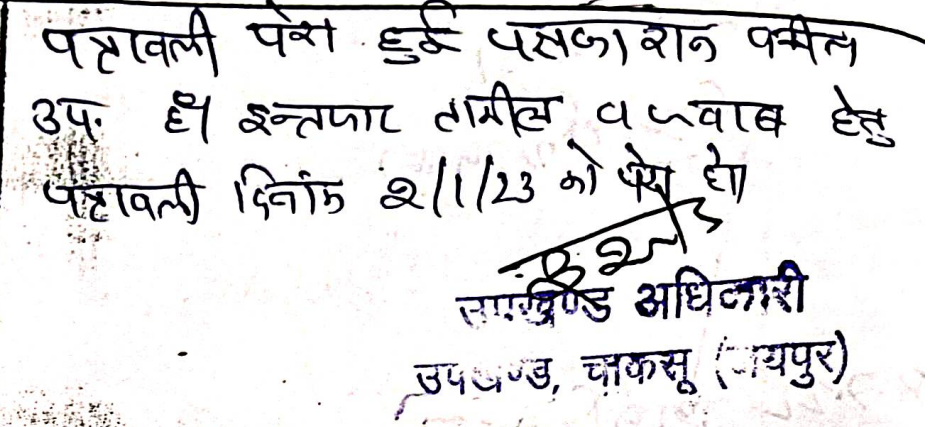 पत्रावली पेश हुई पक्षकारान वकील
उप. है। इन्तजार तामील व जवाब हेतु
पत्रावली दिनांक 2/1/23 को पेश हो।
उपखण्ड अधिकारी
उपखण्ड, चाकसू (जयपुर)